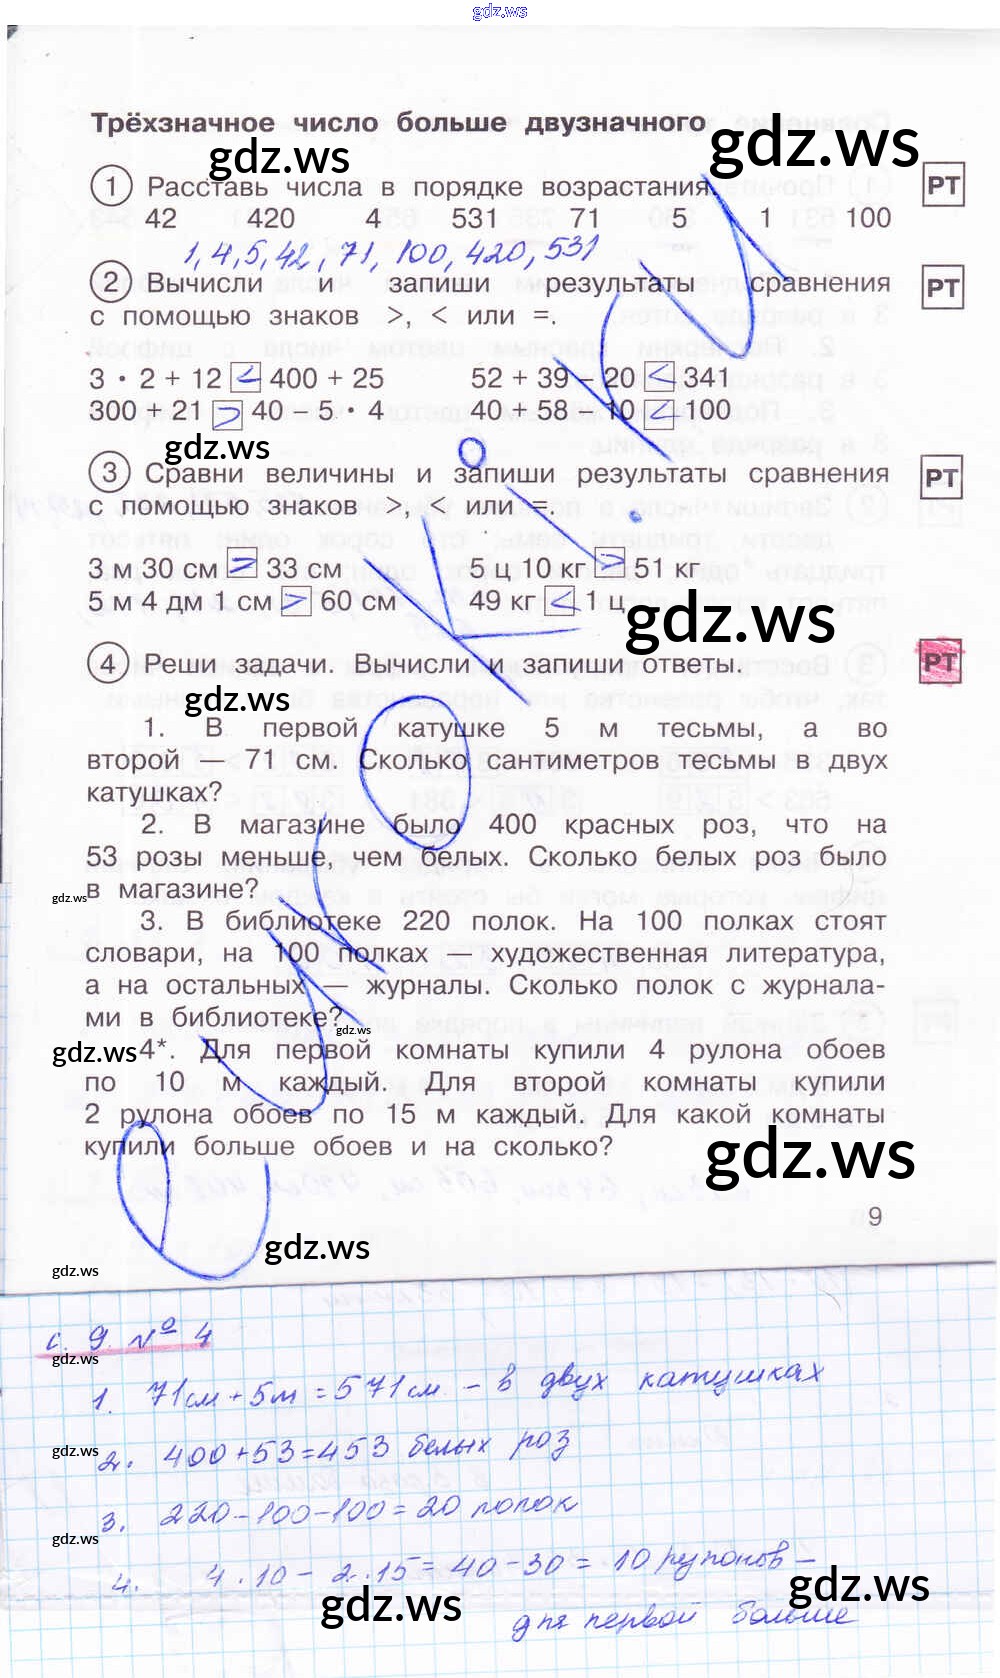 gdz.ws
Трёхзначное число больше двузначного
gdz.ws
gdz.ws
1 Расставь числа в порядке возрастания. РТ
42 420 4 531 71 5 1 100
1, 4, 5, 42, 71, 100, 420, 531
2 Вычисли запиши результаты сравнения РТ
с помощью знаков >, < или =.
3 • 2 + 12 < 400 + 25 52 + 39 – 20 < 341
300 + 21 > 40 – 5 • 4 40 + 58 – 10 < 100
gdz.ws
3 Сравни величины и запиши результаты сравнения РТ
с помощью знаков >, < или =.
3 м 30 см > 33 см 5 ц 10 кг > 51 кг
5 м 4 дм 1 см > 60 см 49 кг < 1 ц
gdz.ws
4 Реши задачи. Вычисли и запиши ответы. РТ
gdz.ws
1. В первой катушке 5 м тесьмы, а во
второй — 71 см. Сколько сантиметров тесьмы в двух
катушках?
2. В магазине было 400 красных роз, что на
53 розы меньше, чем белых. Сколько белых роз было
в магазине?
gdz.ws
3. В библиотеке 220 полок. На 100 полках стоят
словари, на 100 полках — художественная литература,
а на остальных — журналы. Сколько полок с журнала-
ми в библиотеке?
gdz.ws
gdz.ws
4*. Для первой комнаты купили 4 рулона обоев
по 10 м каждый. Для второй комнаты купили
2 рулона обоев по 15 м каждый. Для какой комнаты
купили больше обоев и на сколько?
gdz.ws
9
gdz.ws
gdz.ws
с. 9 № 4
gdz.ws
1. 71см + 5м = 571см – в двух катушках
gdz.ws
2. 400+53=453 белых роз
3. 220-100-100=20 полок
gdz.ws
4. 4·10 - 2·15= 40-30= 10 рулонов –
gdz.ws
gdz.ws
для первой больше